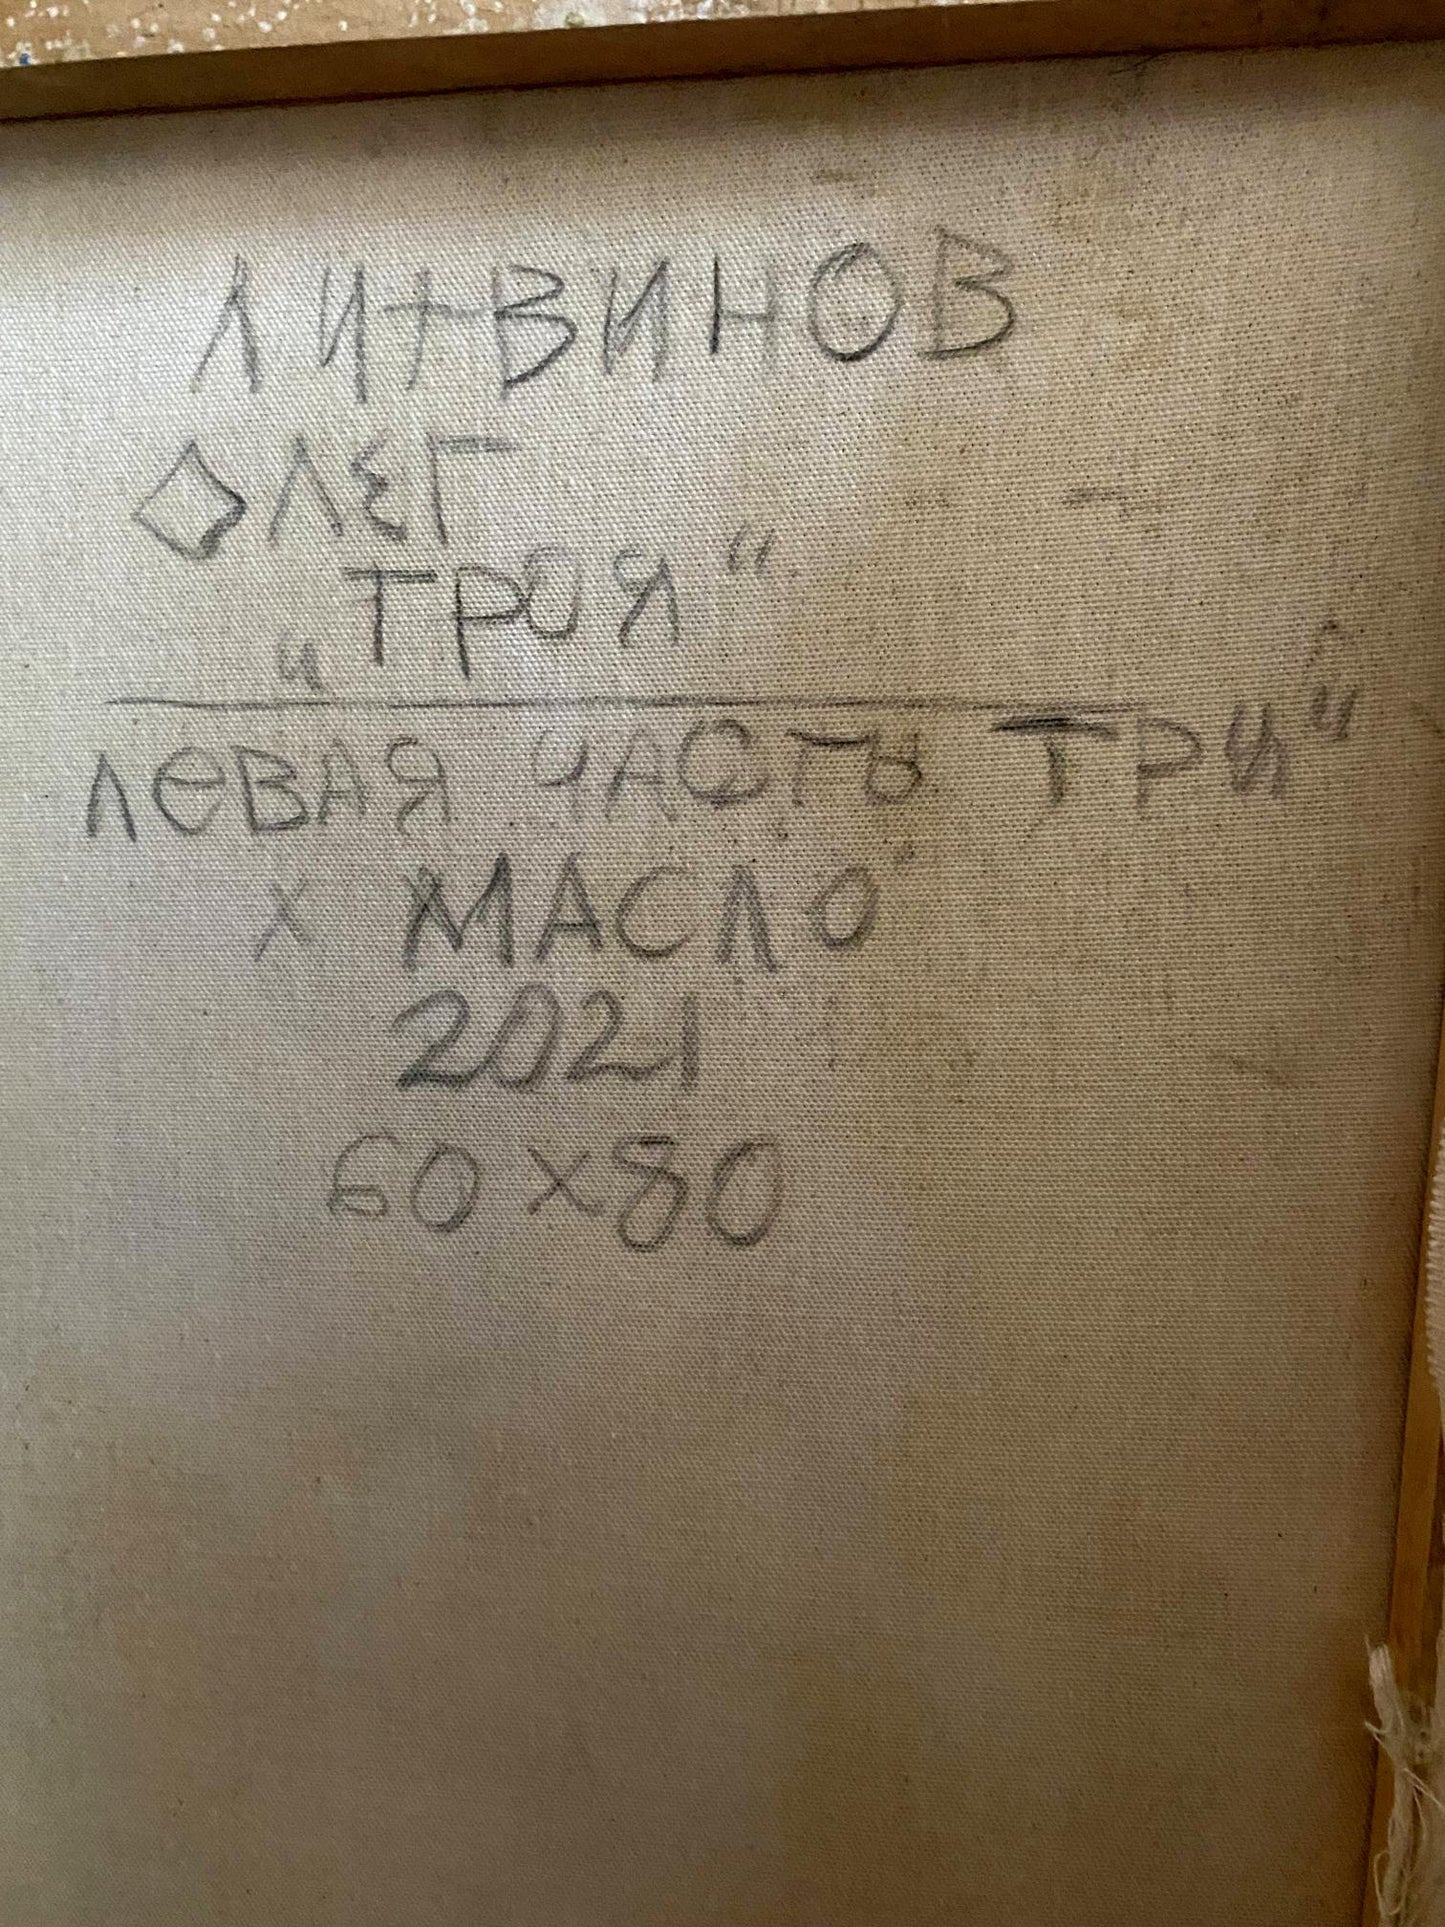 ЛИТВИНОВ
ОЛЕГ
„ТРОЯ“
ЛЕВАЯ ЧАСТЬ ТРИ"
Х МАСЛО
2021
60х80